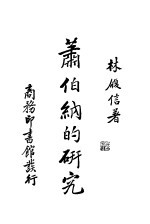 林履信著
蕭伯納的研究
商務印書館發行